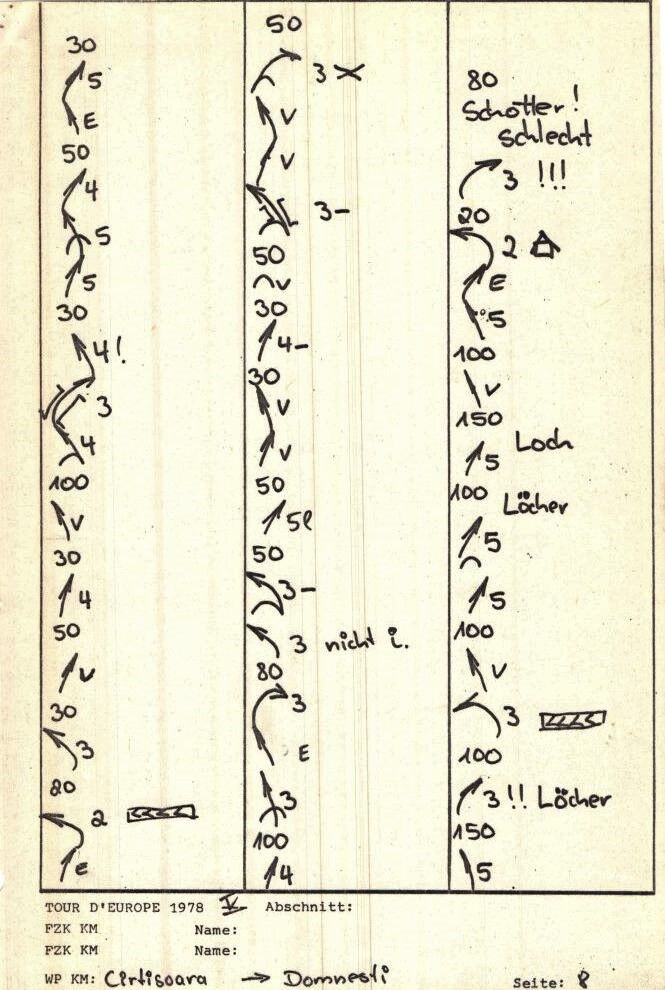 30
5
E
50
4
5
5
30
4!
3
4
100
V
30
4
50
V
30
3
80
2
E
50
3 X
V
V
3-
50
V
30
4-
30
V
V
50
5l
50
3-
3 nicht i.
80
3
E
3
100
4
80
Schotter!
schlecht
3 !!!
20
2
E
5
100
V
150
5 Loch
100 Löcher
5
5
100
V
3
100
3!! Löcher
150
5
TOUR D'EUROPE 1978 V Abschnitt:
FZK KM Name:
FZK KM Name:
WP KM: Cirtisoara → Domnesti Seite: 8